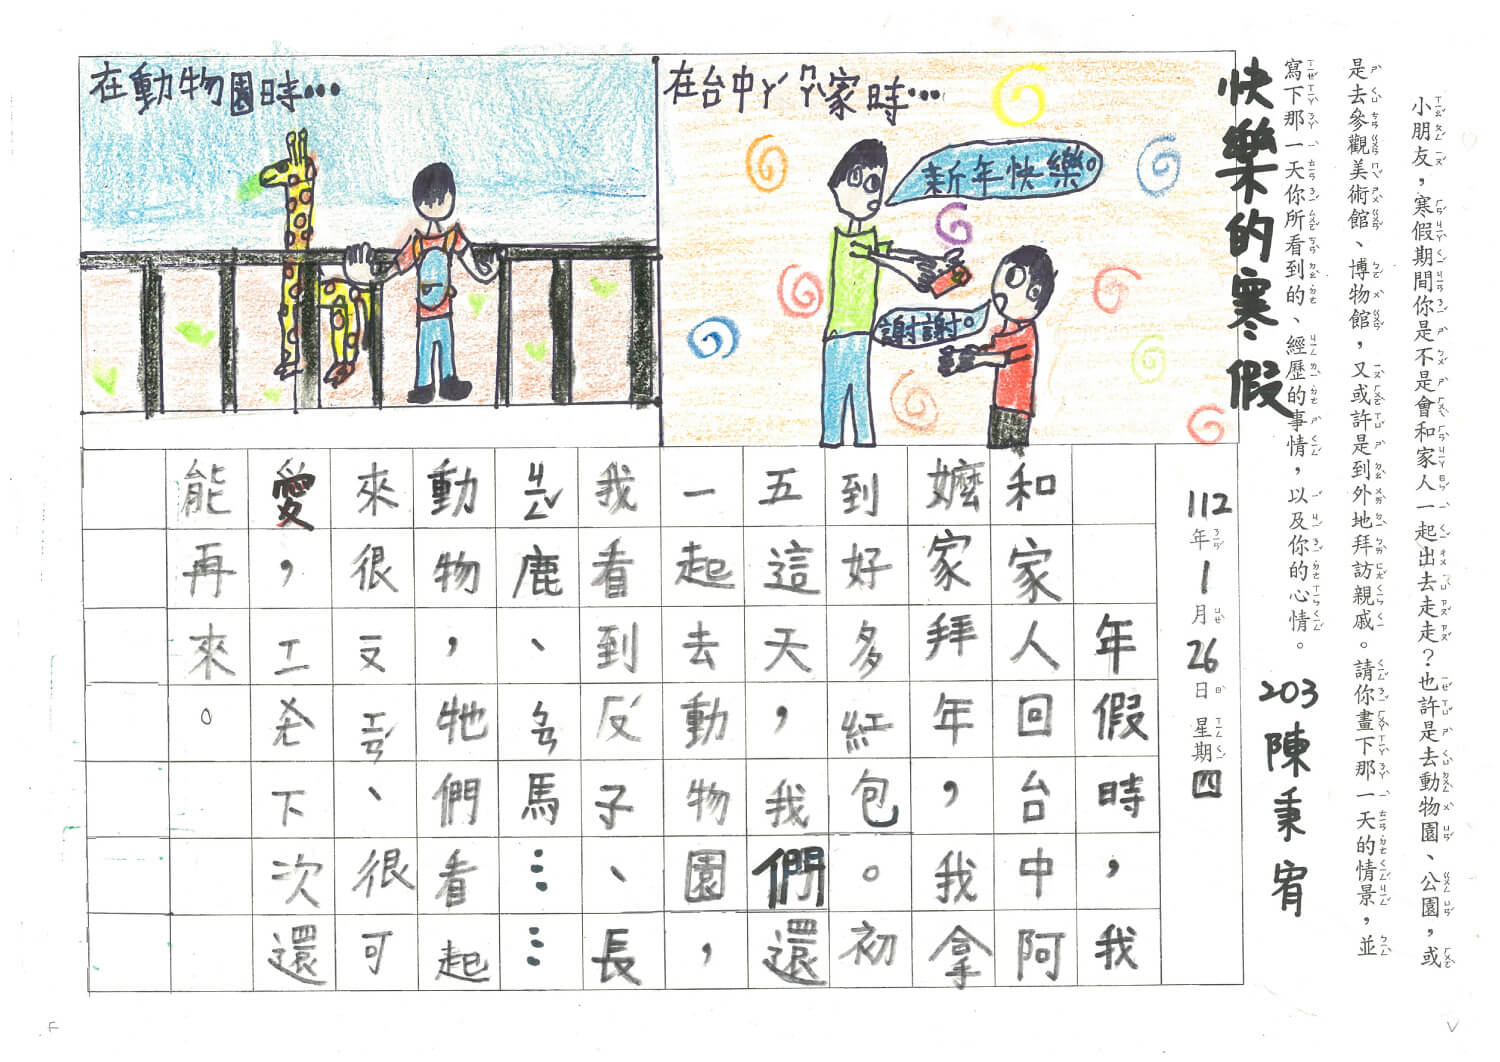 小朋友，寒假期間你是不是會和家人一起出去走走？也許是去動物園、公園，或
是去參觀美術館、博物館，又或許是到外地拜訪親戚。請你畫下那一天的情景，並
寫下那一天你所看到的、經歷的事情，以及你的心情。
快樂的寒假
203陳秉宥
在台中ㄚㄇㄚˋ家時…
新年快樂。
謝謝。
在動物園時…
112年1月26日星期四
年假時，我
和家人回台中阿
嬤家拜年，我拿
到好多紅包。初
五這天，我們還
一起去動物園，
我看到ㄏㄡˊ子、長
ㄐㄧㄥˇ鹿、ㄅㄢ馬……
動物，牠們看起
來很ㄧㄡㄒㄧㄢˊ、很可
愛，ㄒㄧㄨㄤˋ下次還
能再來。